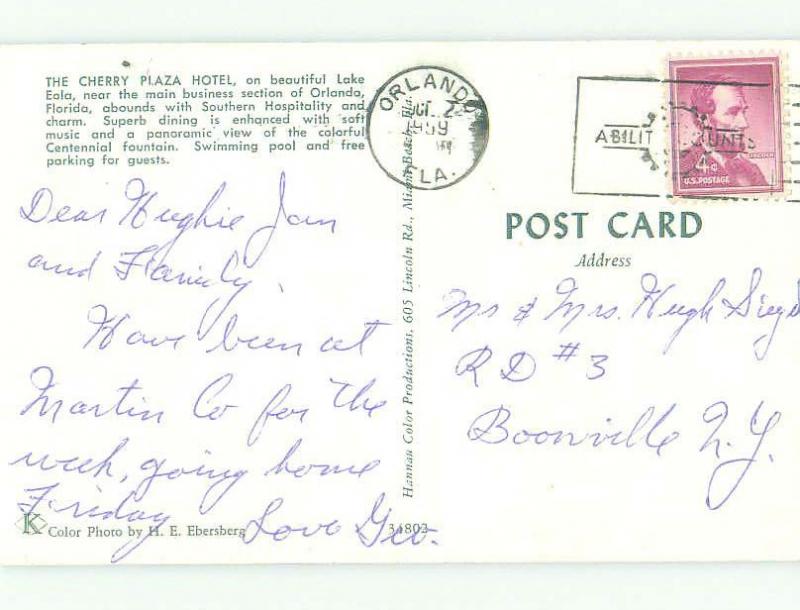 THE CHERRY PLAZA HOTEL, on beautiful Lake
Eola, near the main business section of Orlando,
Florida, abounds with Southern Hospitality and
charm. Superb dining is enhanced with soft
music and a panoramic view of the colorful
Centennial fountain. Swimming pool and free
parking for guests.
Dear Hughie Jan
and Family,
Have been at
Martin Co for the
week, going home
Friday
Love Geo.
K
Color Photo by H. E. Ebersberg
34802
Hannau Color Productions, 605 Lincoln Rd., Miami Beach, Fla.
ORLANDO
1959
FLA.
ABILIT UNTS
4¢
U.S. POSTAGE
LINCOLN
POST CARD
Address
Mr & Mrs. Hugh
R D #3
Boonville N.Y.